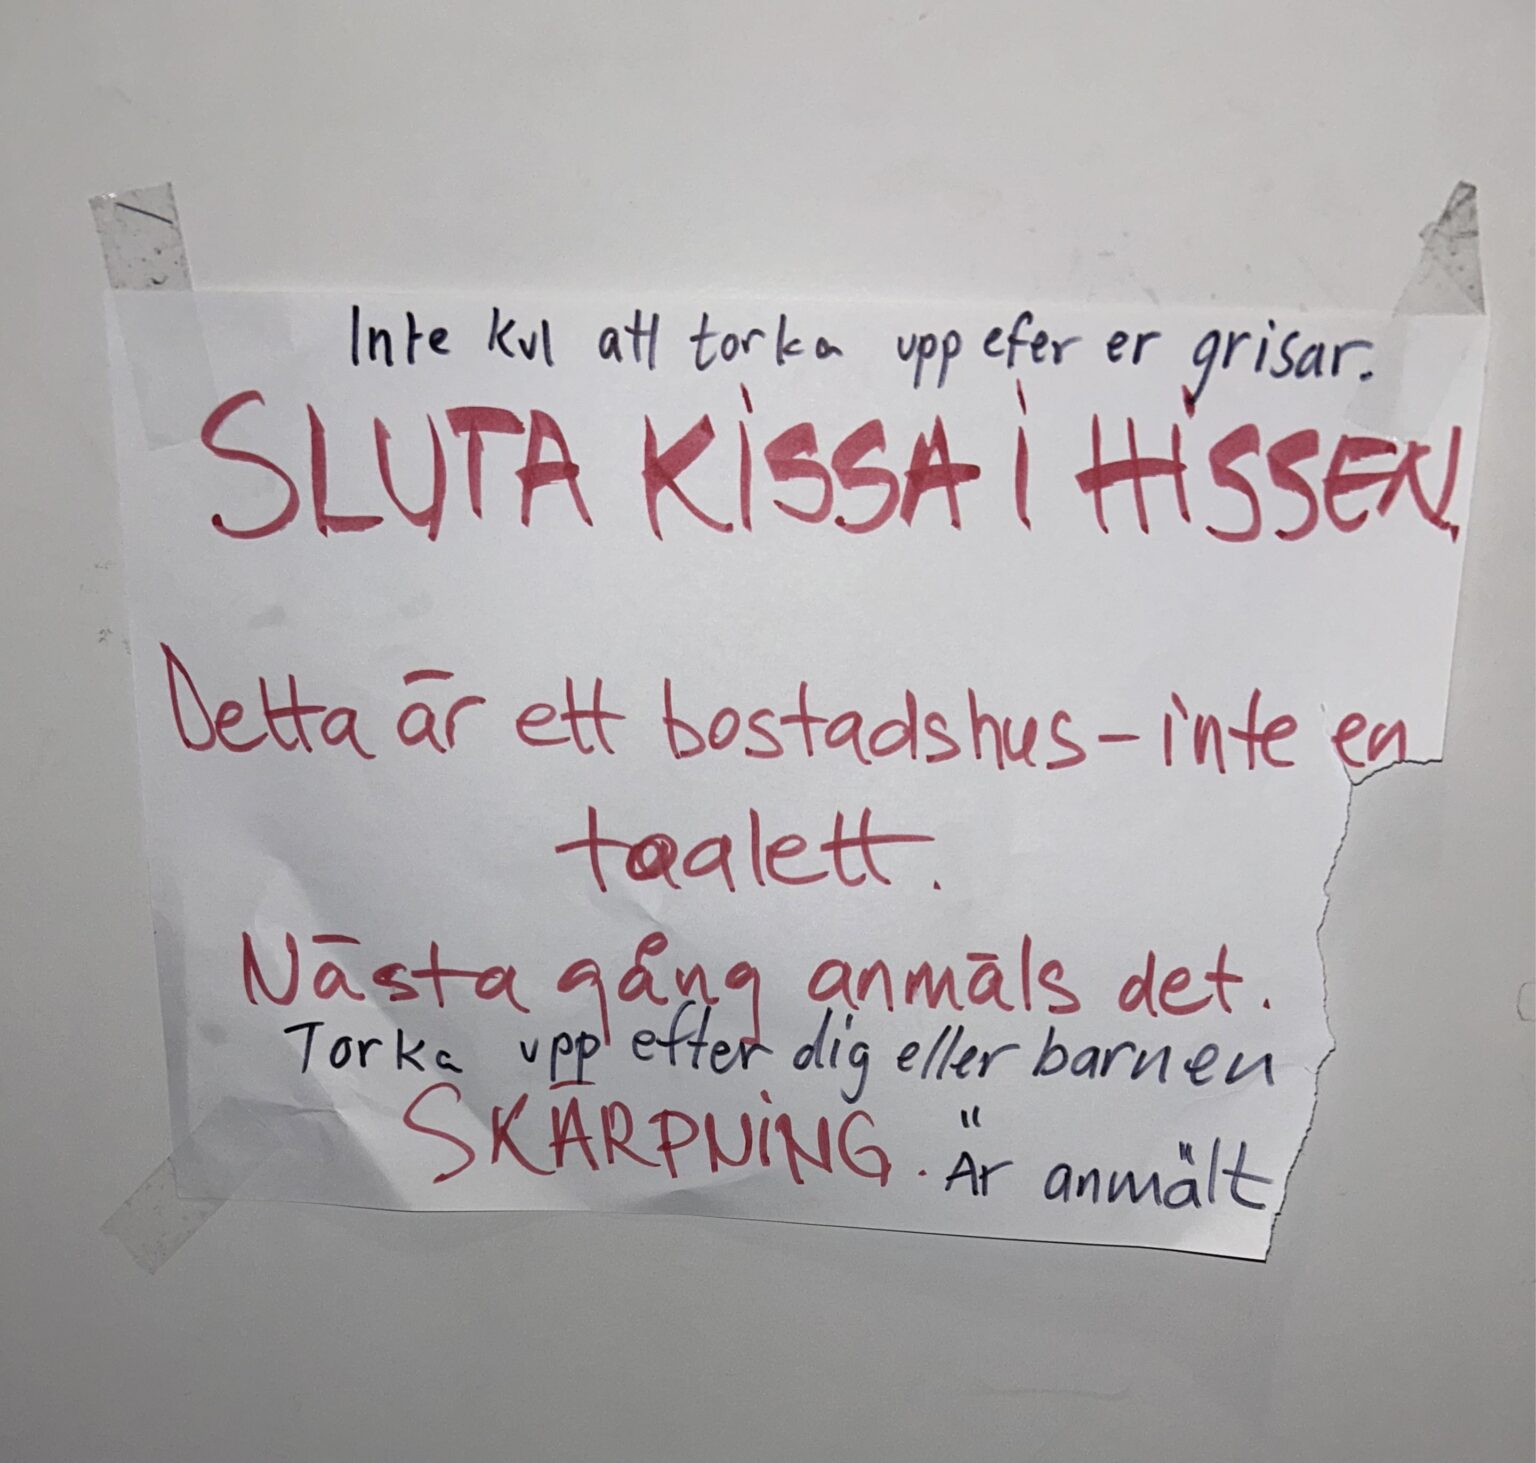 Inte kul att torka upp efer er grisar.
SLUTA KISSA I HISSEN
Detta är ett bostadshus - inte en
taalett.
Nästa gång anmäls det.
Torka upp efter dig eller barnen
SKÄRPNING. Är anmält